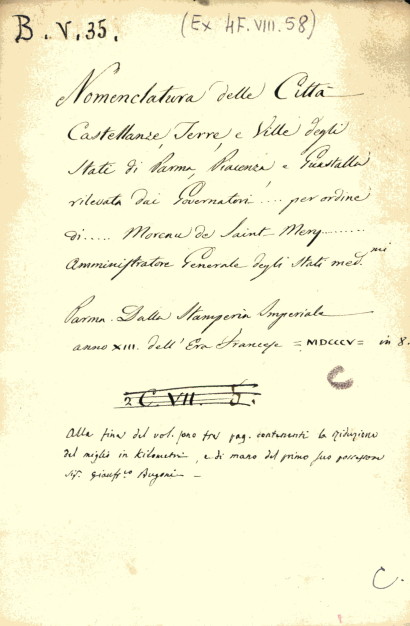 B. V. 35. (Ex 4F. VIII. 58)
Nomenclatura delle Città
Castellanze, Terre, e Ville degli
Stati di Parma, Piacenza e Guastalla
rilevata dai Governatori .... per ordine
di ..... Moreau de Saint Mery ..........
Amministratore Generale degli Stati med.mi
Parma. Dalla Stamperia Imperiale
anno XIII. dell' Era Francese = MDCCCV = in 8.
C
2 C. VII. 5.
Alla fine del vol. sono tre pag. contenenti la riduzione
del miglio in Kilometri, e di mano del primo suo possessore
C.